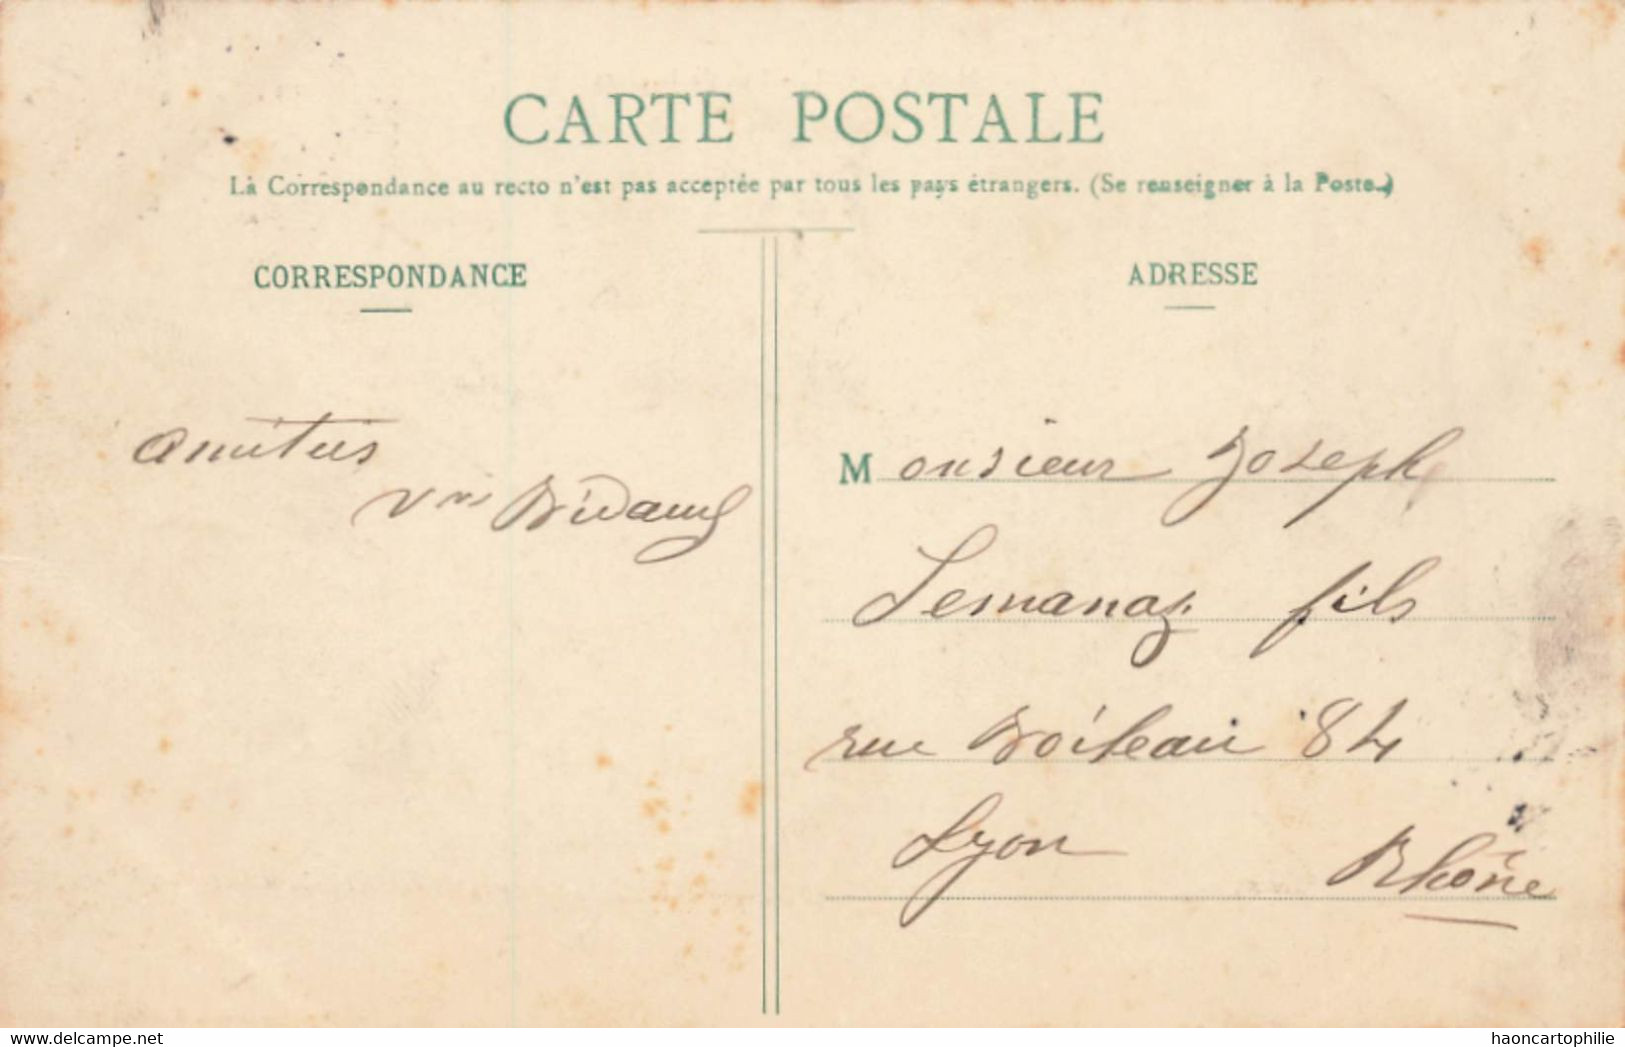 CARTE POSTALE
La Correspondance au recto n'est pas acceptée par tous les pays étrangers. (Se renseigner à la Poste.)
CORRESPONDANCE
ADRESSE
amitiés
Monsieur Joseph
fils
rue Boileau 84
Lyon Rhône
https://www.delcampe.net
haoncartophilie